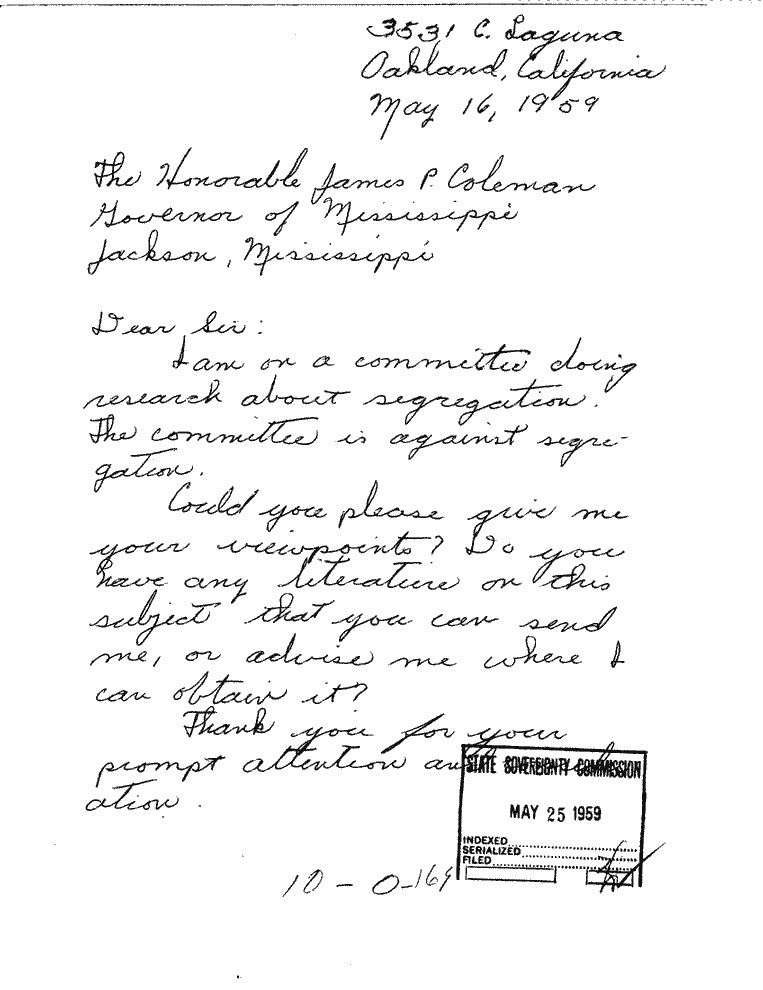 3531 C. Laguna
Oakland, California
May 16, 1959
The Honorable James P. Coleman
Governor of Mississippi
Jackson, Mississippi
Dear Sir:
I am on a committee doing
research about segregation.
The committee is against segre-
gation.
Could you please give me
your viewpoints? Do you
have any literature on this
subject that you can send
me, or advise me where I
can obtain it?
Thank you for your
prompt attention
ation.
STATE SOVEREIGNTY COMMISSION
MAY 25 1959
INDEXED
SERIALIZED
FILED
10-0-169